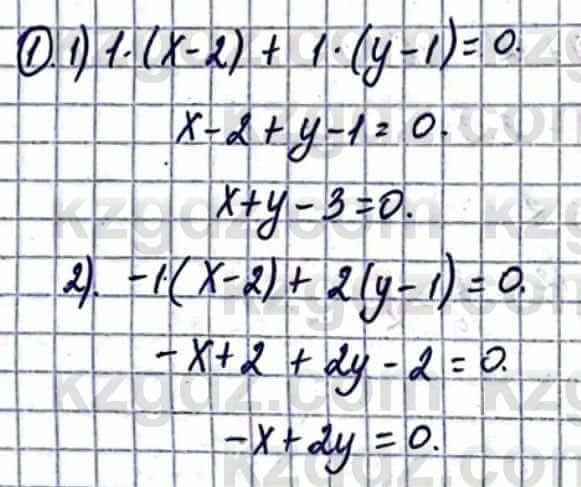 ①. 1) 1·(x-2) + 1·(y-1) = 0.
x-2+y-1 = 0.
x+y-3=0.
2). -1·(x-2)+2(y-1)=0.
-x+2+2y-2=0.
-x+2y=0.